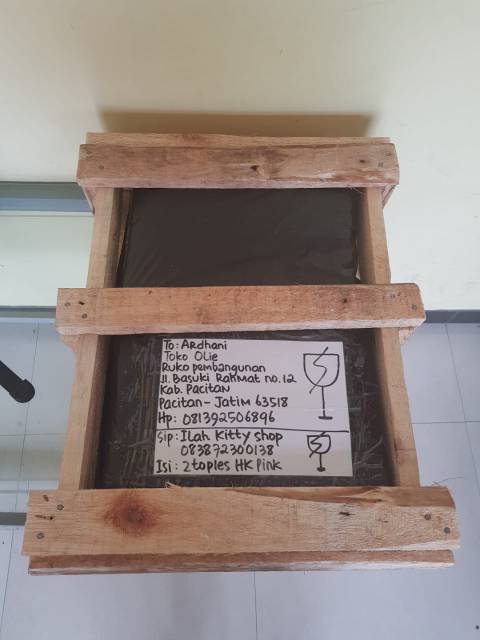 To: Ardhani
Toko Olie
Ruko pembangunan
Jl. Basuki Rahmat no. 12
Kab. Pacitan
Pacitan - Jatim 63518
Hp: 081392506896
Sip: Ilah Kitty shop
083872300138
Isi: 2 toples HK Pink